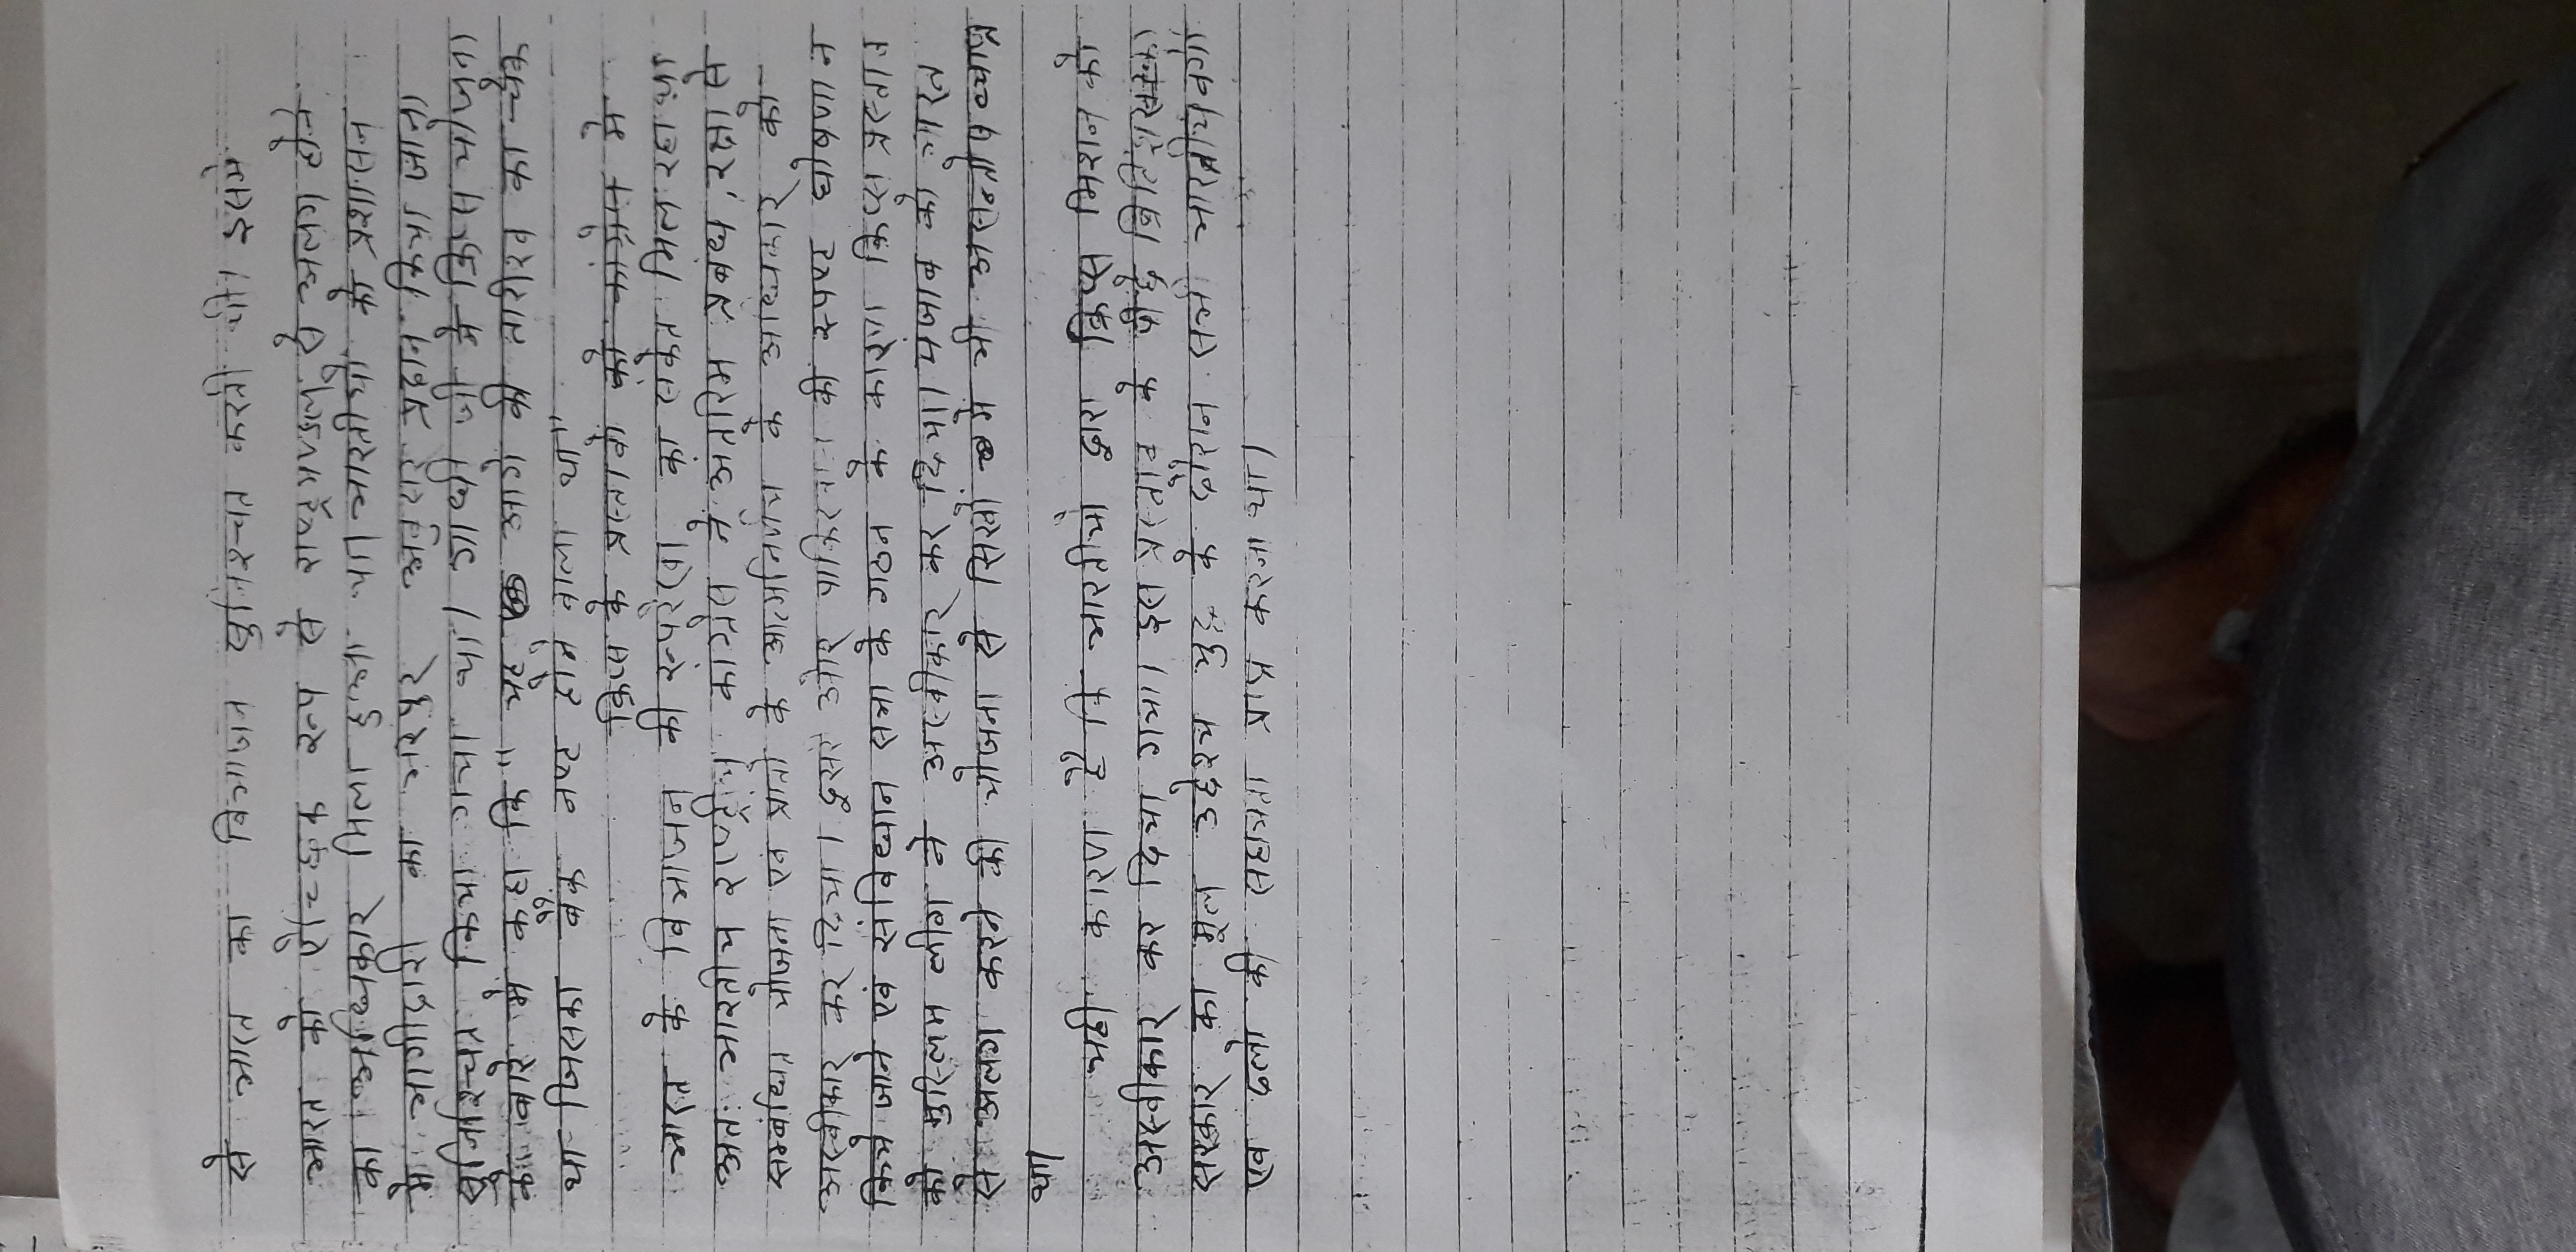 से भारत का विभाजन सुनिश्चित करती थी। इसमे
भारत को ऐच्छिक रूप से राष्ट्रमण्डल से अलग होने
का अधिकार मिला हुआ था भारतीयो को प्रशासन
मे भागीदारी का भरपूर अवसर प्रदान किया जाना
सुनिश्चित किया गया था। गाँधी जी ने क्रिप्स योजना
के बारे में कहा कि " यह आगे की तारीख का चेक
था जिसका बैंक नष्ट होने वाला था"
क्रिप्स के प्रस्तावो को कांग्रेस मे
भारत के विभाजन की रूपरेखा का संकेत मिल रहा था
अतः भारतीय राष्ट्रीय कांग्रेस ने अंतरिम प्रबंध, रक्षा से
सम्बंधित योजना एवं प्रांतो के आत्मनिर्णय के अधिकार को
अस्वीकार कर दिया। दुसरी ओर पाकिस्तान की स्पष्ट घोषणा न
किये जाने एवं संविधान सभा के गठन के कारण क्रिप्स प्रस्ताव
को मुस्लिम लीग ने अस्वीकार कर दिया। पंजाब को भारत
से अलग करने की योजना से सिखो मे भी असन्तोष व्याप्त
था।
यही कारण है कि भारतीयो द्वारा क्रिप्स मिशन को
अस्वीकार कर दिया गया। इस प्रस्ताव के पीछे ब्रिटिश
सरकार का मूल उद्देश्य युद्ध के दौरान सभी भारतीय वर्गो
एवं दलो की सहायता प्राप्त करना था।